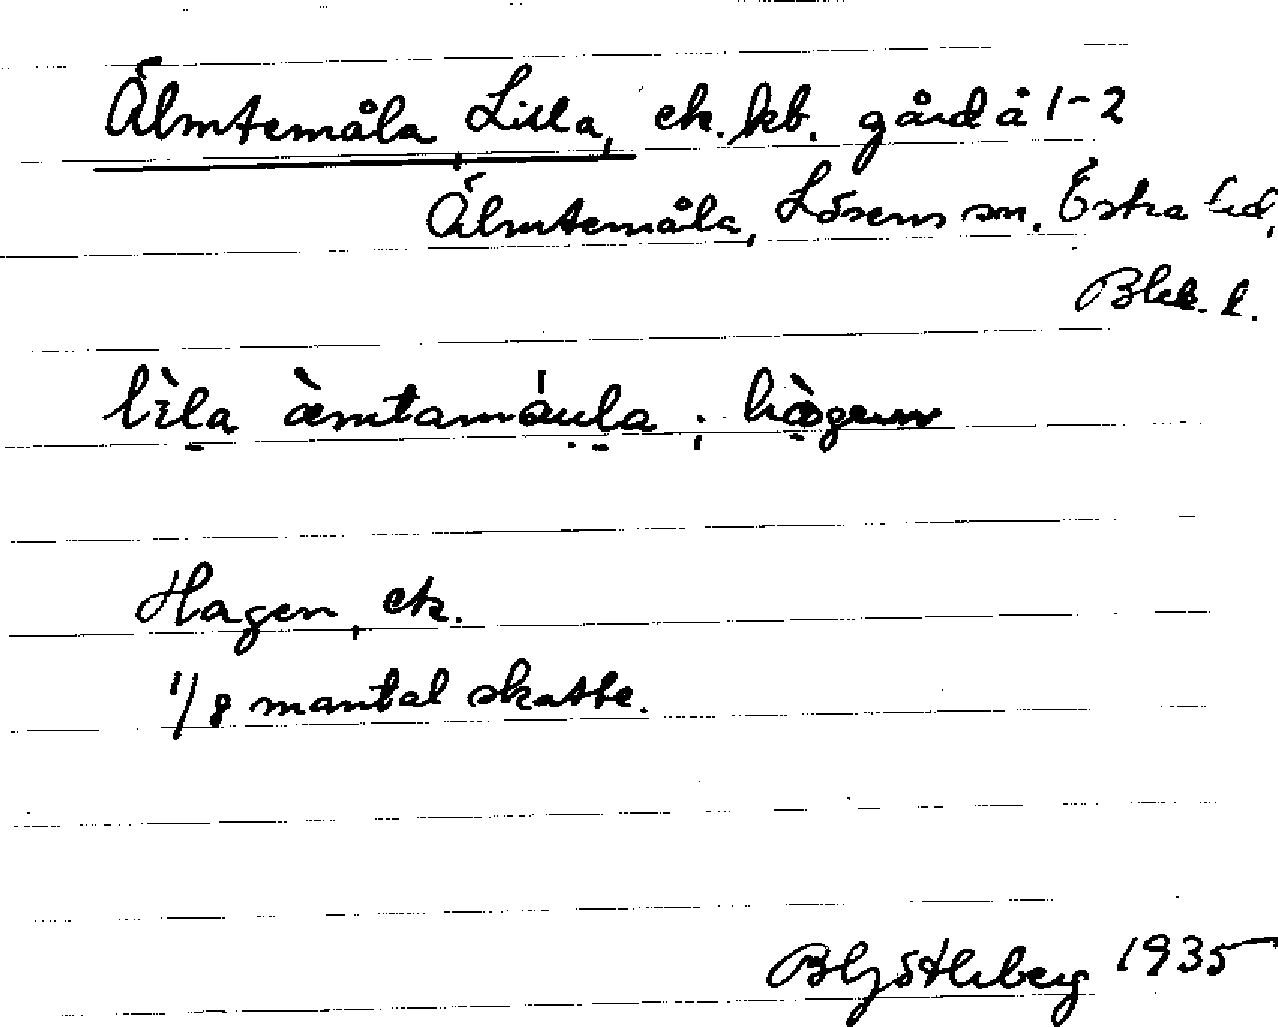 Älmtemåla, Lilla, ek. kb. gård å 1-2
Älmtemåla, Lösens sn. Östra hd,
Blek. l.
lìla æ̀mtamáula ; hàgen
Hagen, ek.
1/8 mantal skatte.
1935